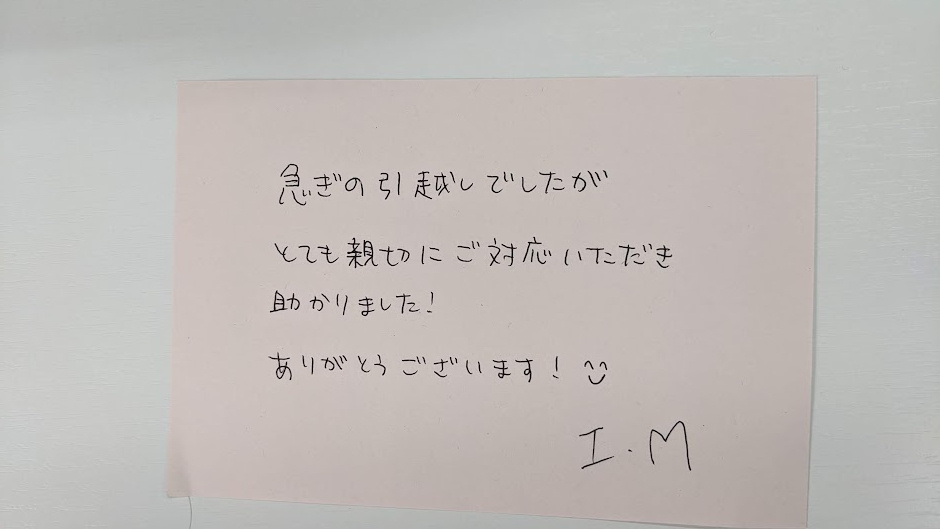 急ぎの引越しでしたが
とても親切にご対応いただき
助かりました!
ありがとうございます!
I.M